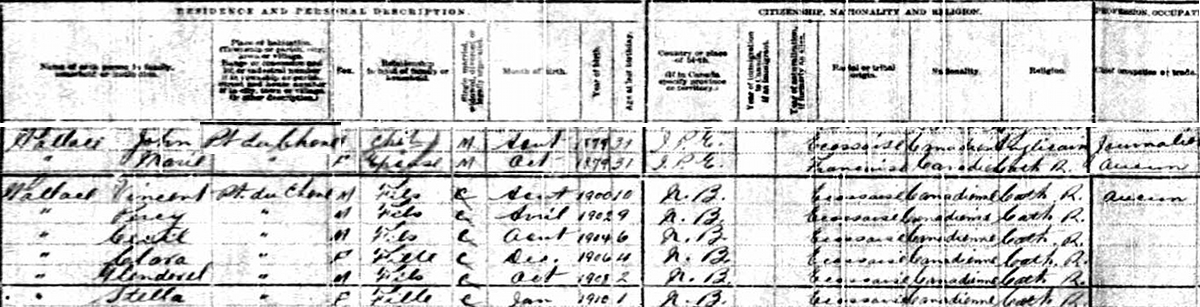 RESIDENCE AND PERSONAL DESCRIPTION. CITIZENSHIP, NATIONALITY AND RELIGION. PROFESSION, OCCUPAT
Name of each person in family, household or institution. Place of habitation. Sex. Relationship to head of family or household. Month of birth. Year of birth. Age at last birthday. Country or place of birth. (If in Canada specify province or territory.) Year of immigration to Canada, if an immigrant. Year of naturalization, if formerly an alien. Racial or tribal origin. Nationality. Religion. Chief occupation or trade.
Wallace John Pt. du Chene Chef M Aout 1879 31 I.P.E. Ecossaise Canadienne Anglicane Journalier
" Marie " F Epouse M Oct 1879 31 I.P.E. Francaise Canadienne Cath R. aucun
Wallace Vincent Pt. du Chene M Fils C Aout 1900 10 N.B. Ecossaise Canadienne Cath R. aucun
" Percy " M Fils C Avril 1902 9 N.B. Ecossaise Canadienne Cath R.
" Cecil " M Fils C Aout 1904 6 N.B. Ecossaise Canadienne Cath. R.
" Clara " F Fille C Dec. 1906 4 N.B. Ecossaise Canadienne Cath. R.
" M Fils C Oct 1908 2 N.B. Ecossaise Canadienne Cath R.
" Stella " F Fille C Jan 1910 1 N.B. Ecossaise Canadienne Cath R.